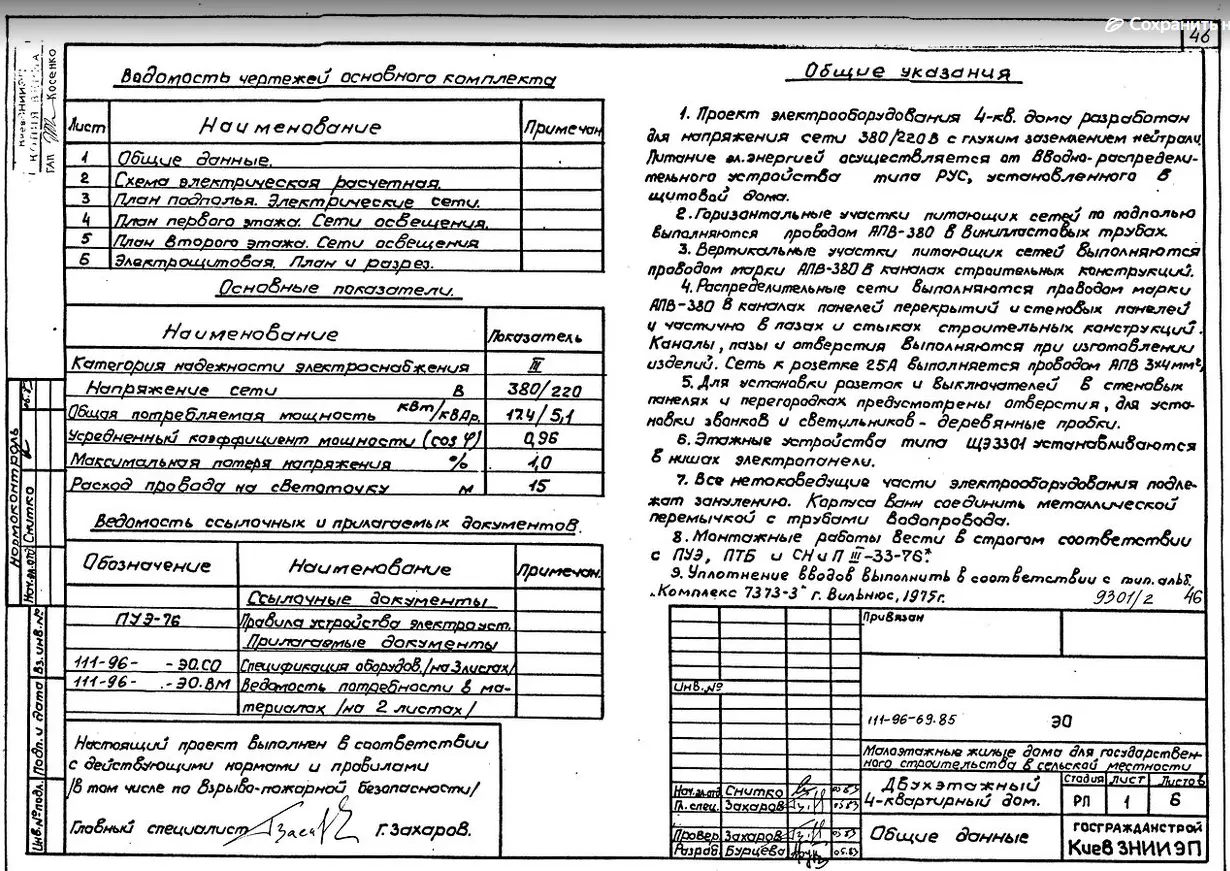 Сохранить
46
КиевЗНИИЭП
ГАП Косенко
Ведомость чертежей основного комплекта
Лист Наименование Примечан
1 Общие данные.
2 Схема электрическая расчетная.
3 План подполья. Электрические сети.
4 План первого этажа. Сети освещения.
5 План второго этажа. Сети освещения
6 Электрощитовая. План и разрез.
Основные показатели.
Наименование Показатель
Категория надежности электроснабжения III
Напряжение сети В 380/220
Общая потребляемая мощность кВт/кВАр. 17.4/5,1
Усредненный коэффициент мощности (cos φ) 0,96
Максимальная потеря напряжения % 1,0
Расход провода на светоточку м 15
Ведомость ссылочных и прилагаемых документов.
Обозначение Наименование Примечан.
Ссылочные документы
ПУЭ-76 Правила устройства электроуст.
Прилагаемые документы
111-96- -ЭО.СО Спецификация оборудов. /на 3 листах/
111-96- .-ЭО.ВМ Ведомость потребности в ма-
териалах /на 2 листах/
Настоящий проект выполнен в соответствии
с действующими нормами и правилами
/в том числе по взрыво-пожарной безопасности/
Главный специалист Г.Захаров.
Нормоконтроль
Нач.эл.отд Снитко
Инв.№подл. Подп. и дата Вз. инв.№
Общие указания
1. Проект электрооборудования 4-кв. дома разработан
для напряжения сети 380/220В с глухим заземлением нейтрали.
Питание эл.энергией осуществляется от вводно-распредели-
тельного устройства типа РУС, установленного в
щитовой дома.
2. Горизонтальные участки питающих сетей по подполью
выполняются проводом АПВ-380 в винипластовых трубах.
3. Вертикальные участки питающих сетей выполняются
проводом марки АПВ-380 в каналах строительных конструкций.
4. Распределительные сети выполняются проводом марки
АПВ-380 в каналах панелей перекрытий и стеновых панелей
и частично в пазах и стыках строительных конструкций.
Каналы, пазы и отверстия выполняются при изготовлении
изделий. Сеть к розетке 25А выполняется проводом АПВ 3х4мм²,
5. Для установки розеток и выключателей в стеновых
панелях и перегородках предусмотрены отверстия, для уста-
новки звонков и светильников - деревянные пробки.
6. Этажные устройства типа ЩЭ3301 устанавливаются
в нишах электропанели.
7. Все нетоковедущие части электрооборудования подле-
жат занулению. Корпуса ванн соединить металлической
перемычкой с трубами водопровода.
8. Монтажные работы вести в строгом соответствии
с ПУЭ, ПТБ и СНиП III-33-76*.
9. Уплотнение вводов выполнить в соответствии с тип. альб.
„Комплекс 7373-3" г. Вильнюс, 1975г.
9301/2 46
Привязан
Инв.№
111-96-69.85 ЭО
Малоэтажные жилые дома для государствен-
ного строительства в сельской местности
Нач.эл.отд Снитко 05.83
Гл. спец. Захаров 05.83
Провер. Захаров 05.83
Разраб. Бурцева 05.83
Двухэтажный
4-квартирный дом.
Стадия Лист Листов
РП 1 6
Общие данные
ГОСГРАЖДАНСТРОЙ
КиевЗНИИЭП